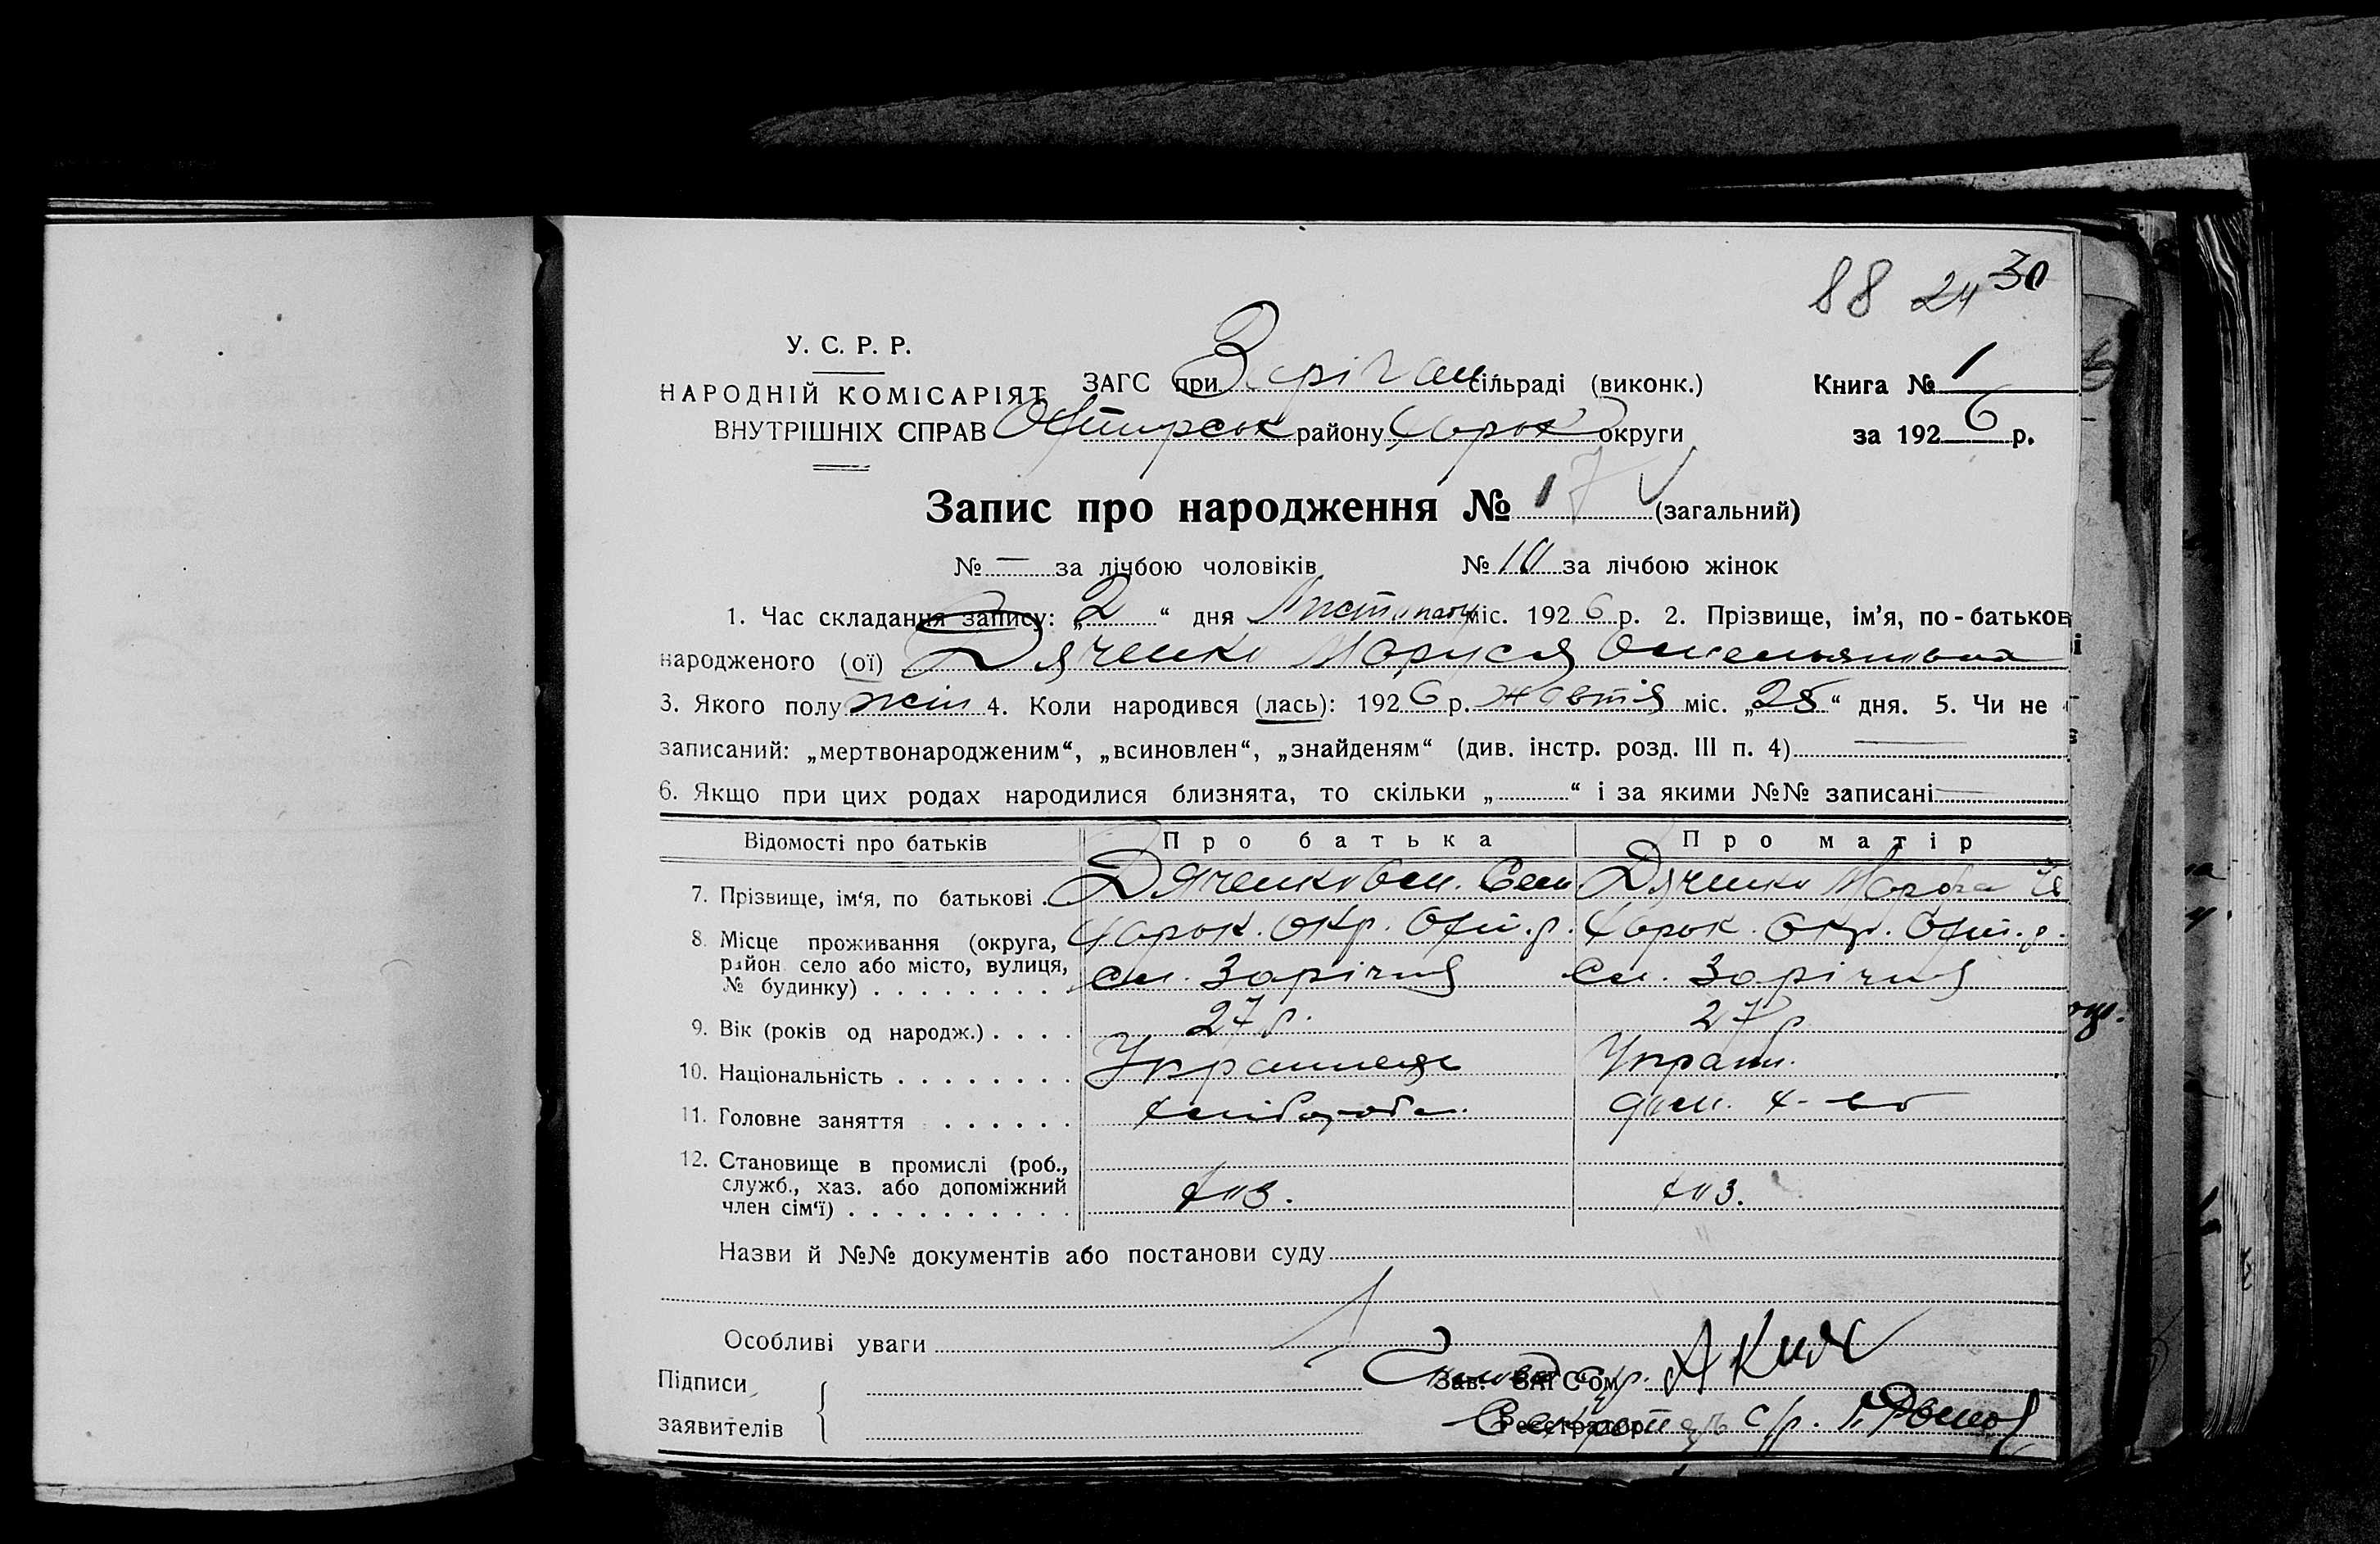 88 24 30
У. С. Р. Р.
НАРОДНІЙ КОМІСАРІЯТ
ВНУТРІШНІХ СПРАВ
ЗАГС при Зарічан сільраді (виконк.)
району Харьк округи
Книга № 1
за 1926 р.
Запис про народження № 17 (загальний)
№ — за лічбою чоловіків № 10 за лічбою жінок
1. Час складання запису: „2“ дня Листопаду міс. 1926 р. 2. Прізвище, ім'я, по-батькові
народженого (ої) Дяченко Маруся Омельяновна
3. Якого полу жін 4. Коли народився (лась): 1926 р. Жовтня міс. „28“ дня. 5. Чи не
записаний: „мертвонародженим“, „всиновлен“, „знайденям“ (див. інстр. розд. III п. 4)
6. Якщо при цих родах народилися близнята, то скільки „ “ і за якими №№ записані
Відомості про батьків Про батька Про матір
7. Прізвище, ім'я, по батькові . Дяченко Ом. Сем Дяченко Марфа
8. Місце проживання (округа, Харьк. окр. Охт. р. Харьк. Окр. Охт. р.
район село або місто, вулиця, сл. Зарічня сл. Зарічня
№ будинку)
9. Вік (років од народж.) 27 р. 27 р
10. Національність Украинець Украин.
11. Головне заняття хлібороб. дом. х-во
12. Становище в промислі (роб.,
служб., хаз. або допоміжний
член сім'ї)
Назви й №№ документів або постанови суду
Особливі уваги
Підписи
заявителів
Зав. ЗАГС'ом
Голова с/р.
Реєстратор
Секретарь с/р.